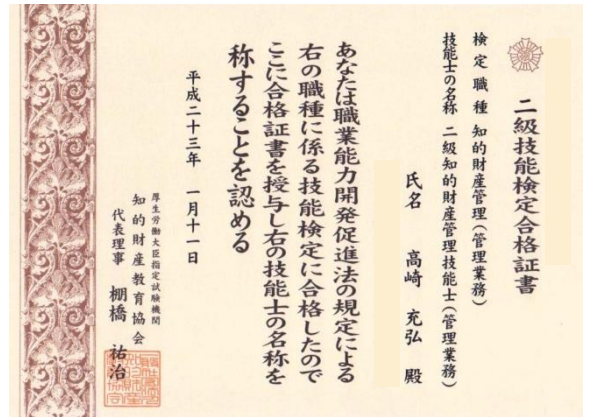 二級技能検定合格証書
検定職種 知的財産管理(管理業務)
技能士の名称 二級知的財産管理技能士(管理業務)
氏名 高崎 充弘 殿
あなたは職業能力開発促進法の規定による
右の職種に係る技能検定に合格したので
ここに合格証書を授与し右の技能士の名称を
称することを認める
平成二十三年 一月十一日
厚生労働大臣指定試験機関
知的財産教育協会
代表理事 棚橋 祐治